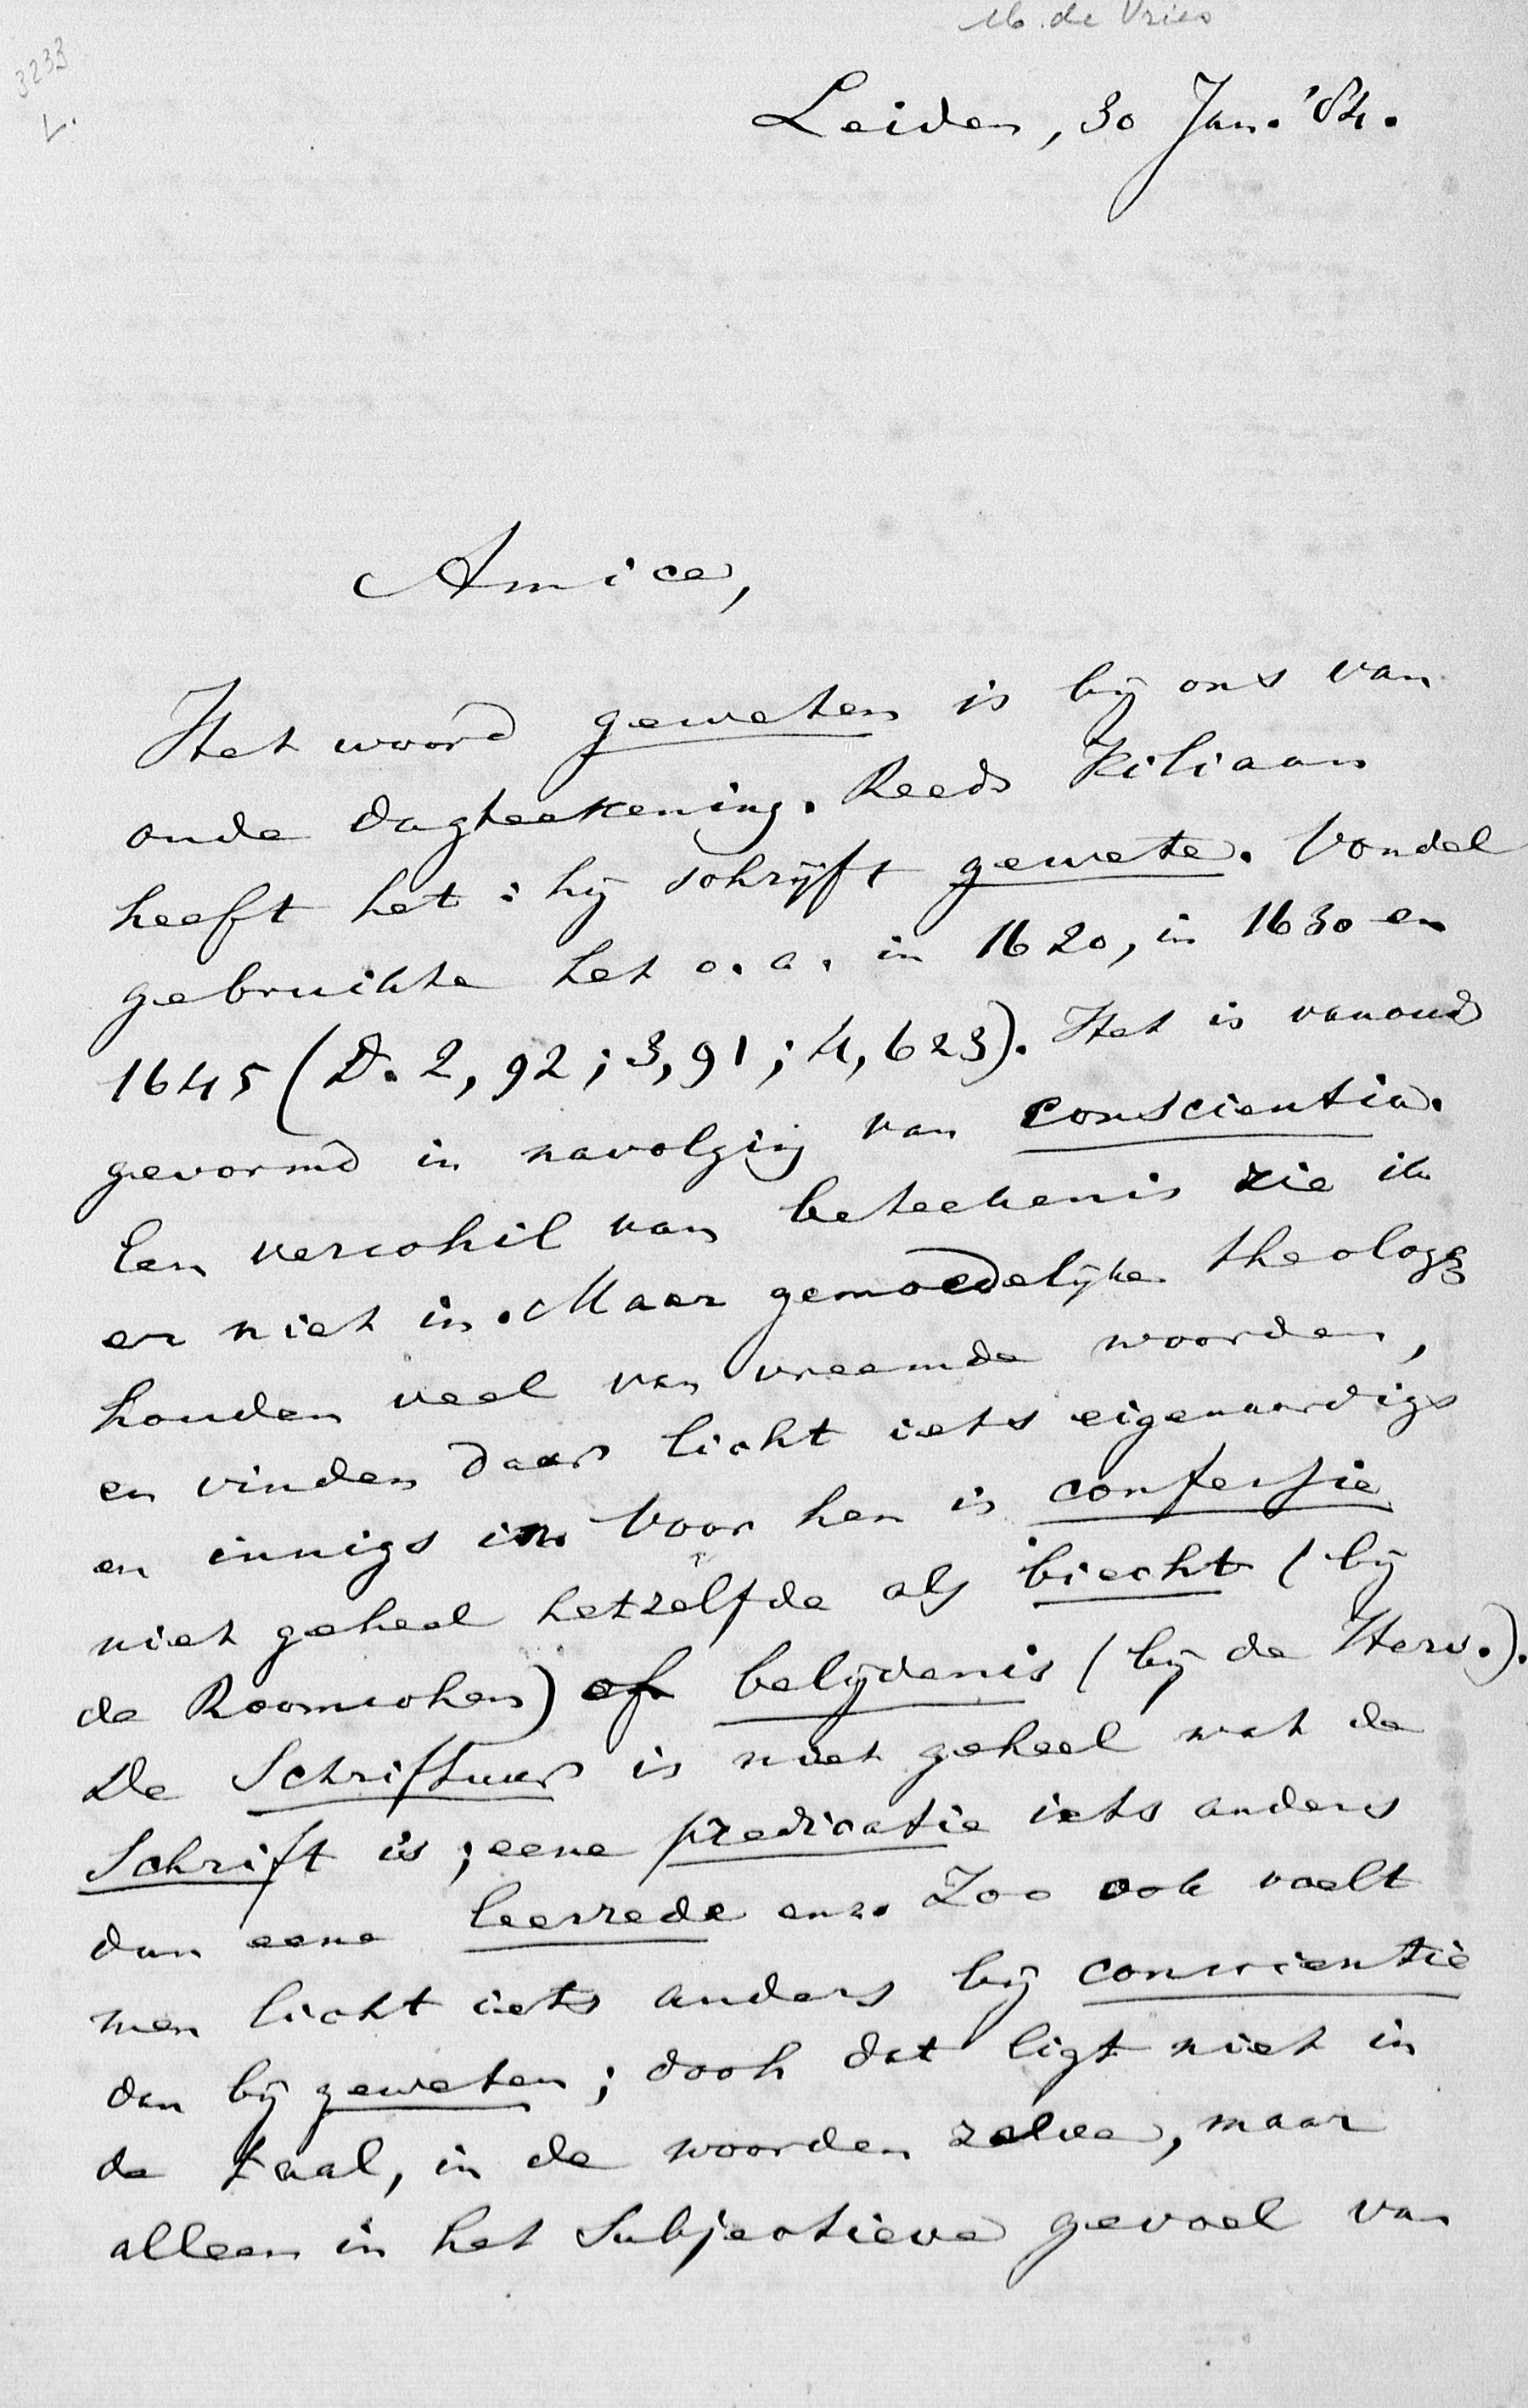 M. de Vries
3233
L.
Leiden, 30 Jan. '84.
Amice,
Het woord geweten is bij ons van
oude dagteekening. Reeds Kiliaan
heeft het: hij schrijft gewete. Vondel
gebruikte het o.a. in 1620, in 1630 en
1645 (D. 2, 92; 3, 91; 4, 623). Het is vanoud
gevormd in navolging van conscientia.
Een verschil van beteekenis zie ik
er niet in. Maar gemoedelijke theologen
houden veel van vreemde woorden,
en vinden daar licht iets eigenaardigs
en innigs in. Voor hen is confessie
niet geheel hetzelfde als biecht (bij
de Roomschen) of belijdenis (bij de Herv.).
De Schriftuur is niet geheel wat de
Schrift is; eene predicatie iets anders
dan eene leerrede enz. Zoo ook voelt
men licht iets anders bij conscientie
dan bij geweten; doch dat ligt niet in
de taal, in de woorden zelve, maar
alleen in het subjectieve gevoel van